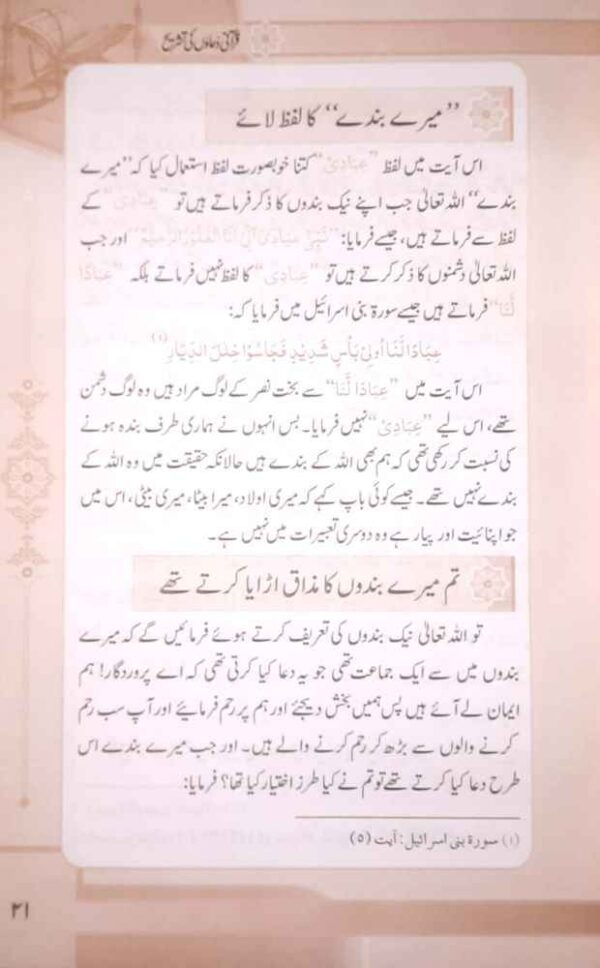 قرآنی دعاؤں کی تشریح
”میرے بندے“ کا لفظ لائے
اس آیت میں لفظ ”عِبَادِیْ“ کتنا خوبصورت لفظ استعمال کیا کہ ”میرے
بندے“ اللہ تعالیٰ جب اپنے نیک بندوں کا ذکر فرماتے ہیں تو ”عِبَادِیْ“ کے
لفظ سے فرماتے ہیں، جیسے فرمایا: ”نَبِّئْ عِبَادِیْ اَنِّیْ اَنَا الْغَفُوْرُ الرَّحِیْمُ“ اور جب
اللہ تعالیٰ دشمنوں کا ذکر کرتے ہیں تو ”عِبَادِیْ“ کا لفظ نہیں فرماتے بلکہ ”عِبَادًا
لَّنَا“ فرماتے ہیں جیسے سورۃ بنی اسرائیل میں فرمایا کہ:
عِبَادًا لَّنَا اُولِیْ بَاْسٍ شَدِیْدٍ فَجَاسُوْا خِلٰلَ الدِّیَارِ (۱)
اس آیت میں ”عِبَادًا لَّنَا“ سے بخت نصر کے لوگ مراد ہیں وہ لوگ دشمن
تھے، اس لیے ”عِبَادِیْ“ نہیں فرمایا۔ بس انہوں نے ہماری طرف بندہ ہونے
کی نسبت کر رکھی تھی کہ ہم بھی اللہ کے بندے ہیں حالانکہ حقیقت میں وہ اللہ کے
بندے نہیں تھے۔ جیسے کوئی باپ کہے کہ میری اولاد، میرا بیٹا، میری بیٹی، اس میں
جو اپنائیت اور پیار ہے وہ دوسری تعبیرات میں نہیں ہے۔
تم میرے بندوں کا مذاق اڑایا کرتے تھے
تو اللہ تعالیٰ نیک بندوں کی تعریف کرتے ہوئے فرمائیں گے کہ میرے
بندوں میں سے ایک جماعت تھی جو یہ دعا کیا کرتی تھی کہ اے پروردگار! ہم
ایمان لے آئے ہیں پس ہمیں بخش دیجئے اور ہم پر رحم فرمائیے اور آپ سب رحم
کرنے والوں سے بڑھ کر رحم کرنے والے ہیں۔ اور جب میرے بندے اس
طرح دعا کیا کرتے تھے تو تم نے کیا طرز اختیار کیا تھا؟ فرمایا:
(۱) سورۃ بنی اسرائیل: آیت (۵)
۲۱